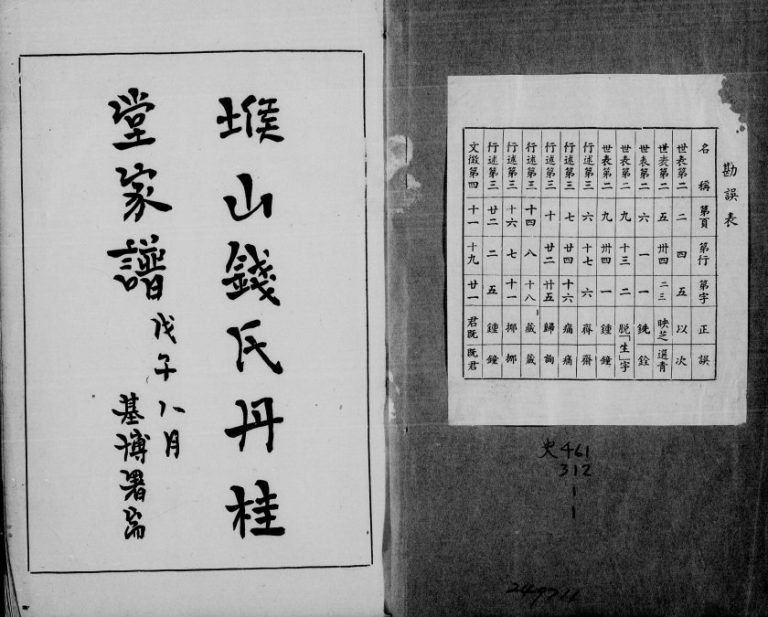 勘誤表
名稱 第頁 第行 第字 正 誤
世表第二 二 四 五 以 次
世表第二 五 卅四 二三 映芝 選青
世表第二 六 一 一 銑 銓
世表第二 九 十三 二 脱「生」字
世表第二 九 卅四 一 鍾 鐘
行述第三 六 十七 六
行述第三 七 廿四 十六
行述第三 十 廿二 廿五 歸
行述第三 十四 八 十八
行述第三 十六 七 十一
行述第三 廿二 二 五 鍾 鐘
文徵第四 十一 十九 廿一 君既 既君
史461
312
1
1
堠山錢氏丹桂
堂家譜
戊午八月
基博署耑